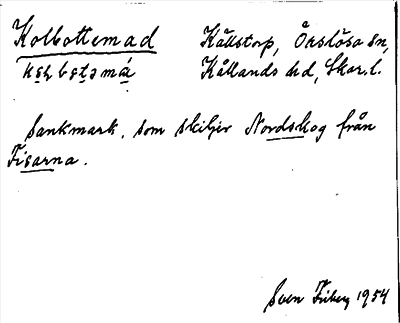 Kolbottemad Källstorp, Örslösa sn,
Kållands hd, Skar. l.
Sankmark, som skiljer Nordskog från
Fisarna.
Sven Friberg 1954